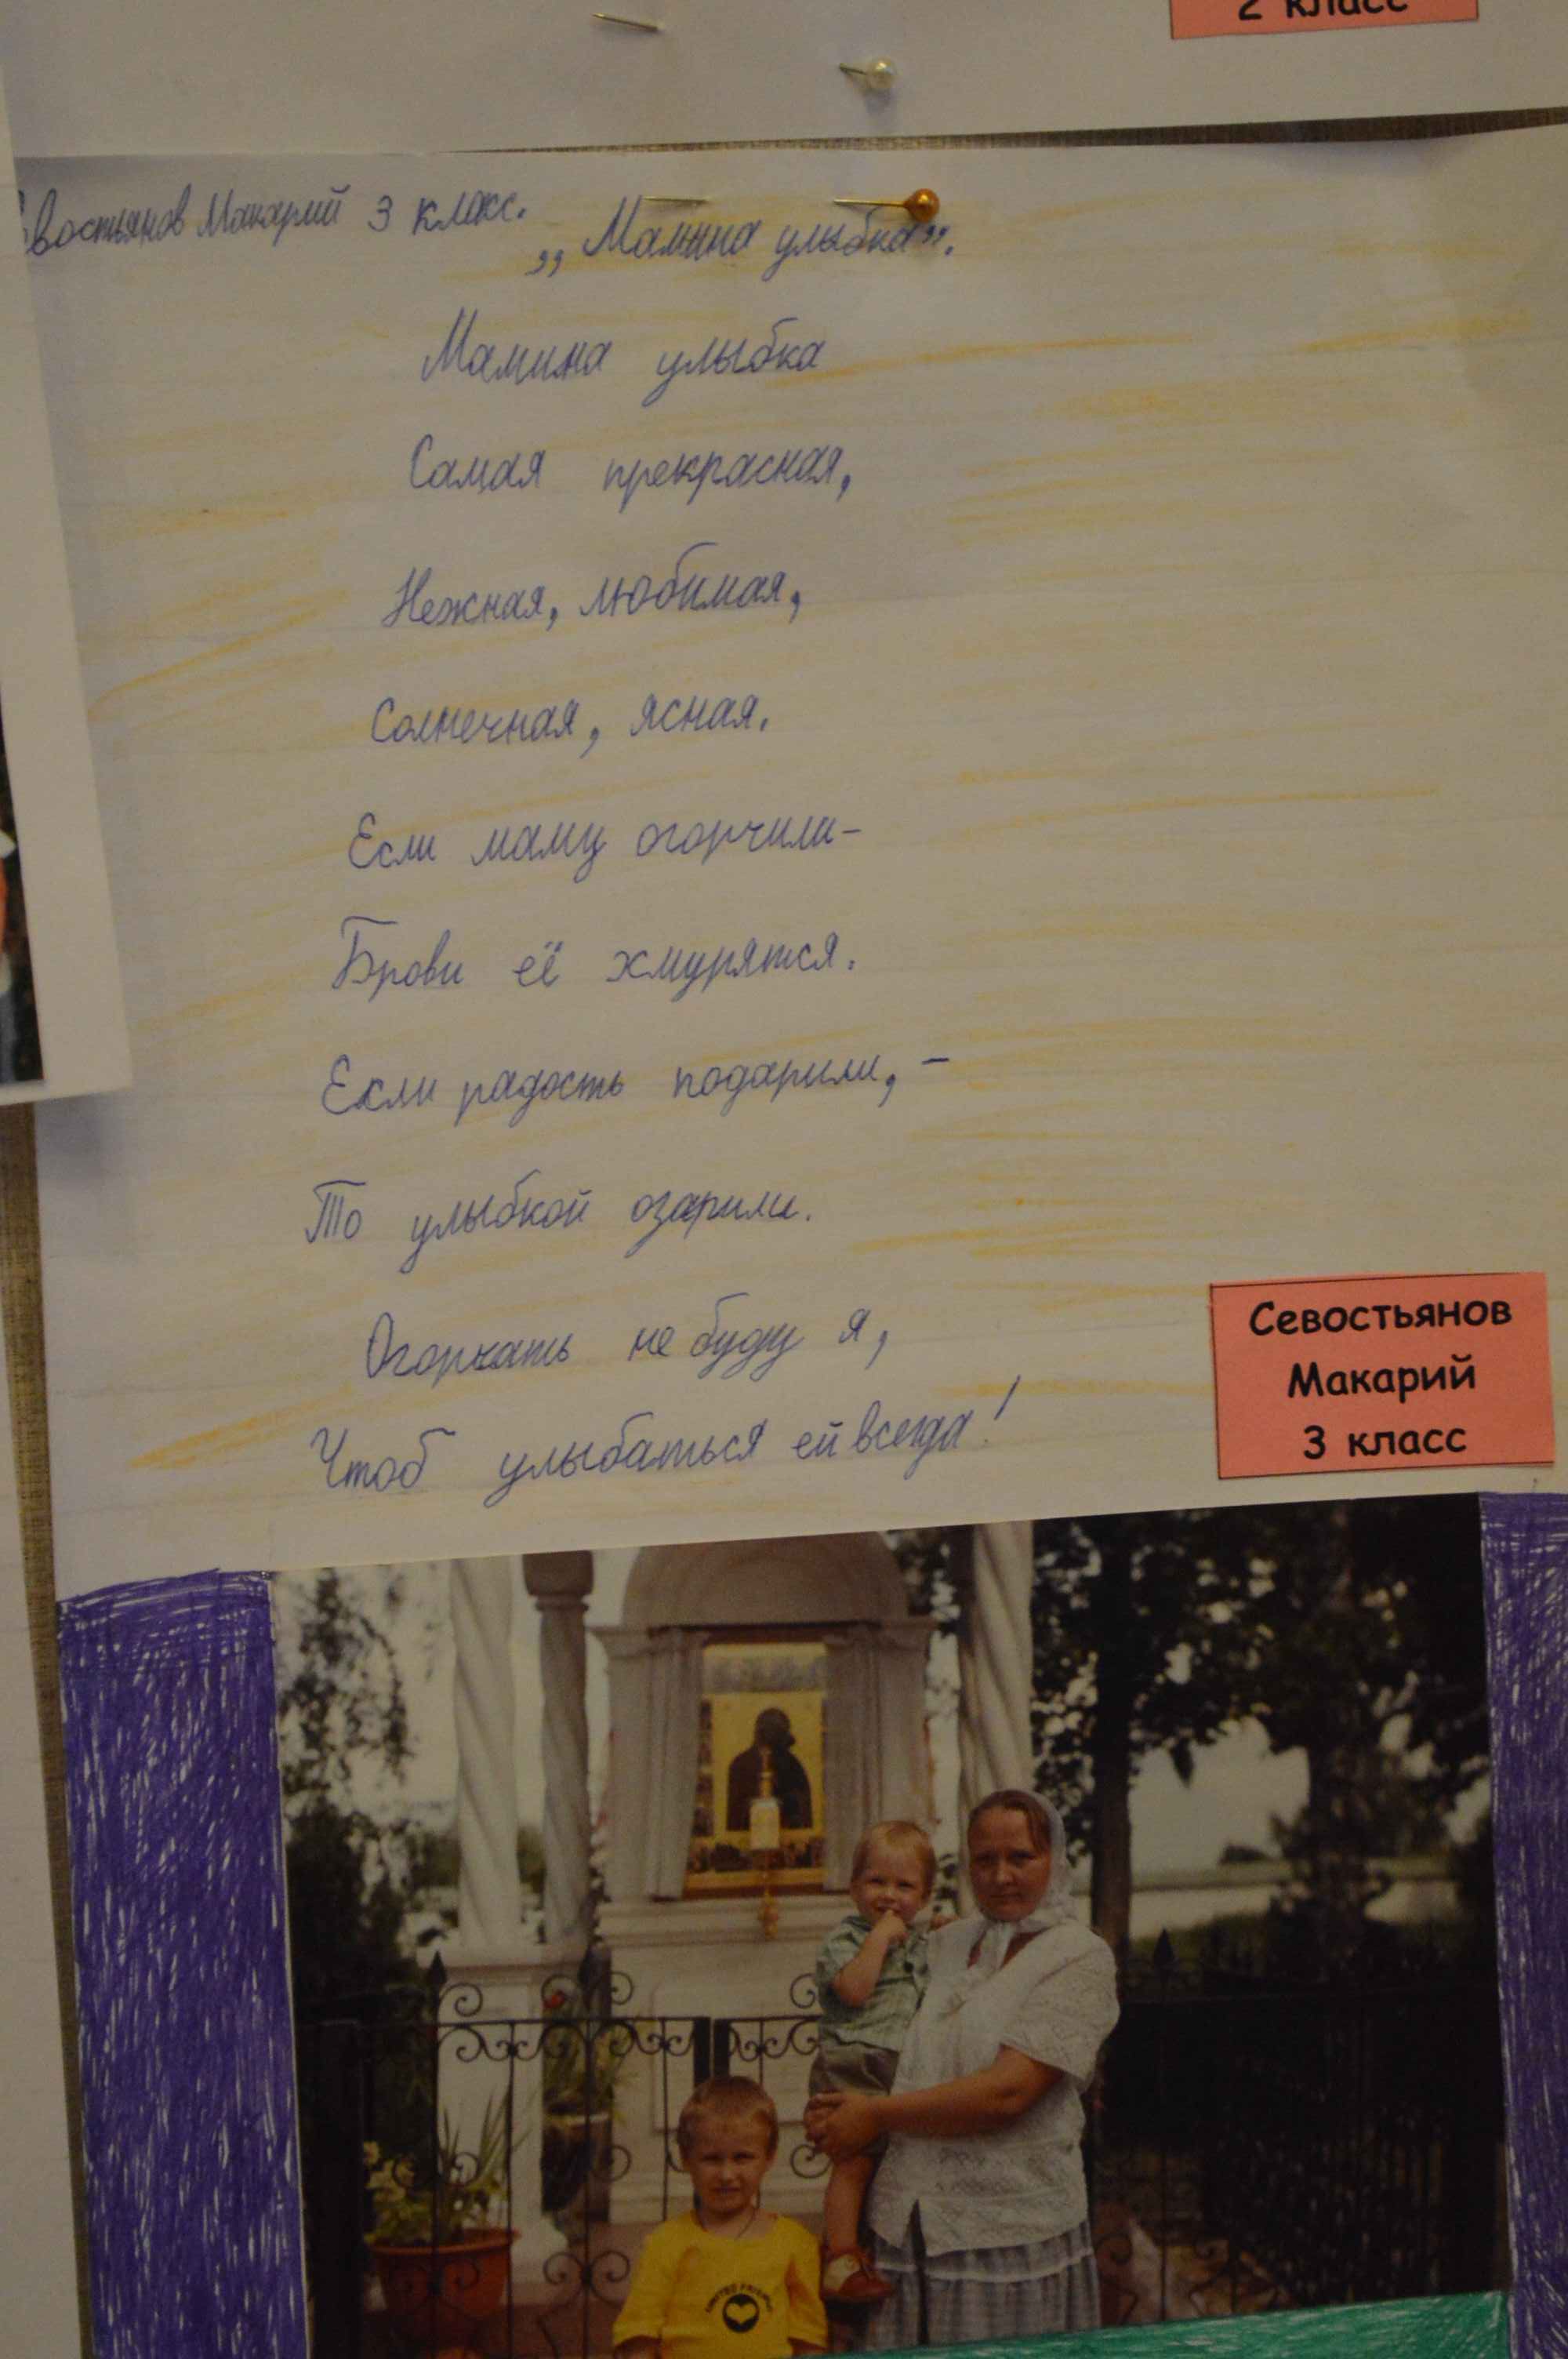 2 класс
Севостьянов Макарий 3 класс.
„Мамина улыбка”.
Мамина улыбка
Самая прекрасная,
Нежная, любимая,
Солнечная, ясная.
Если маму огорчили-
Брови её хмурятся.
Если радость подарили, -
То улыбкой озарили.
Огорчать не буду я,
Чтоб улыбаться ей всегда!
Севостьянов
Макарий
3 класс